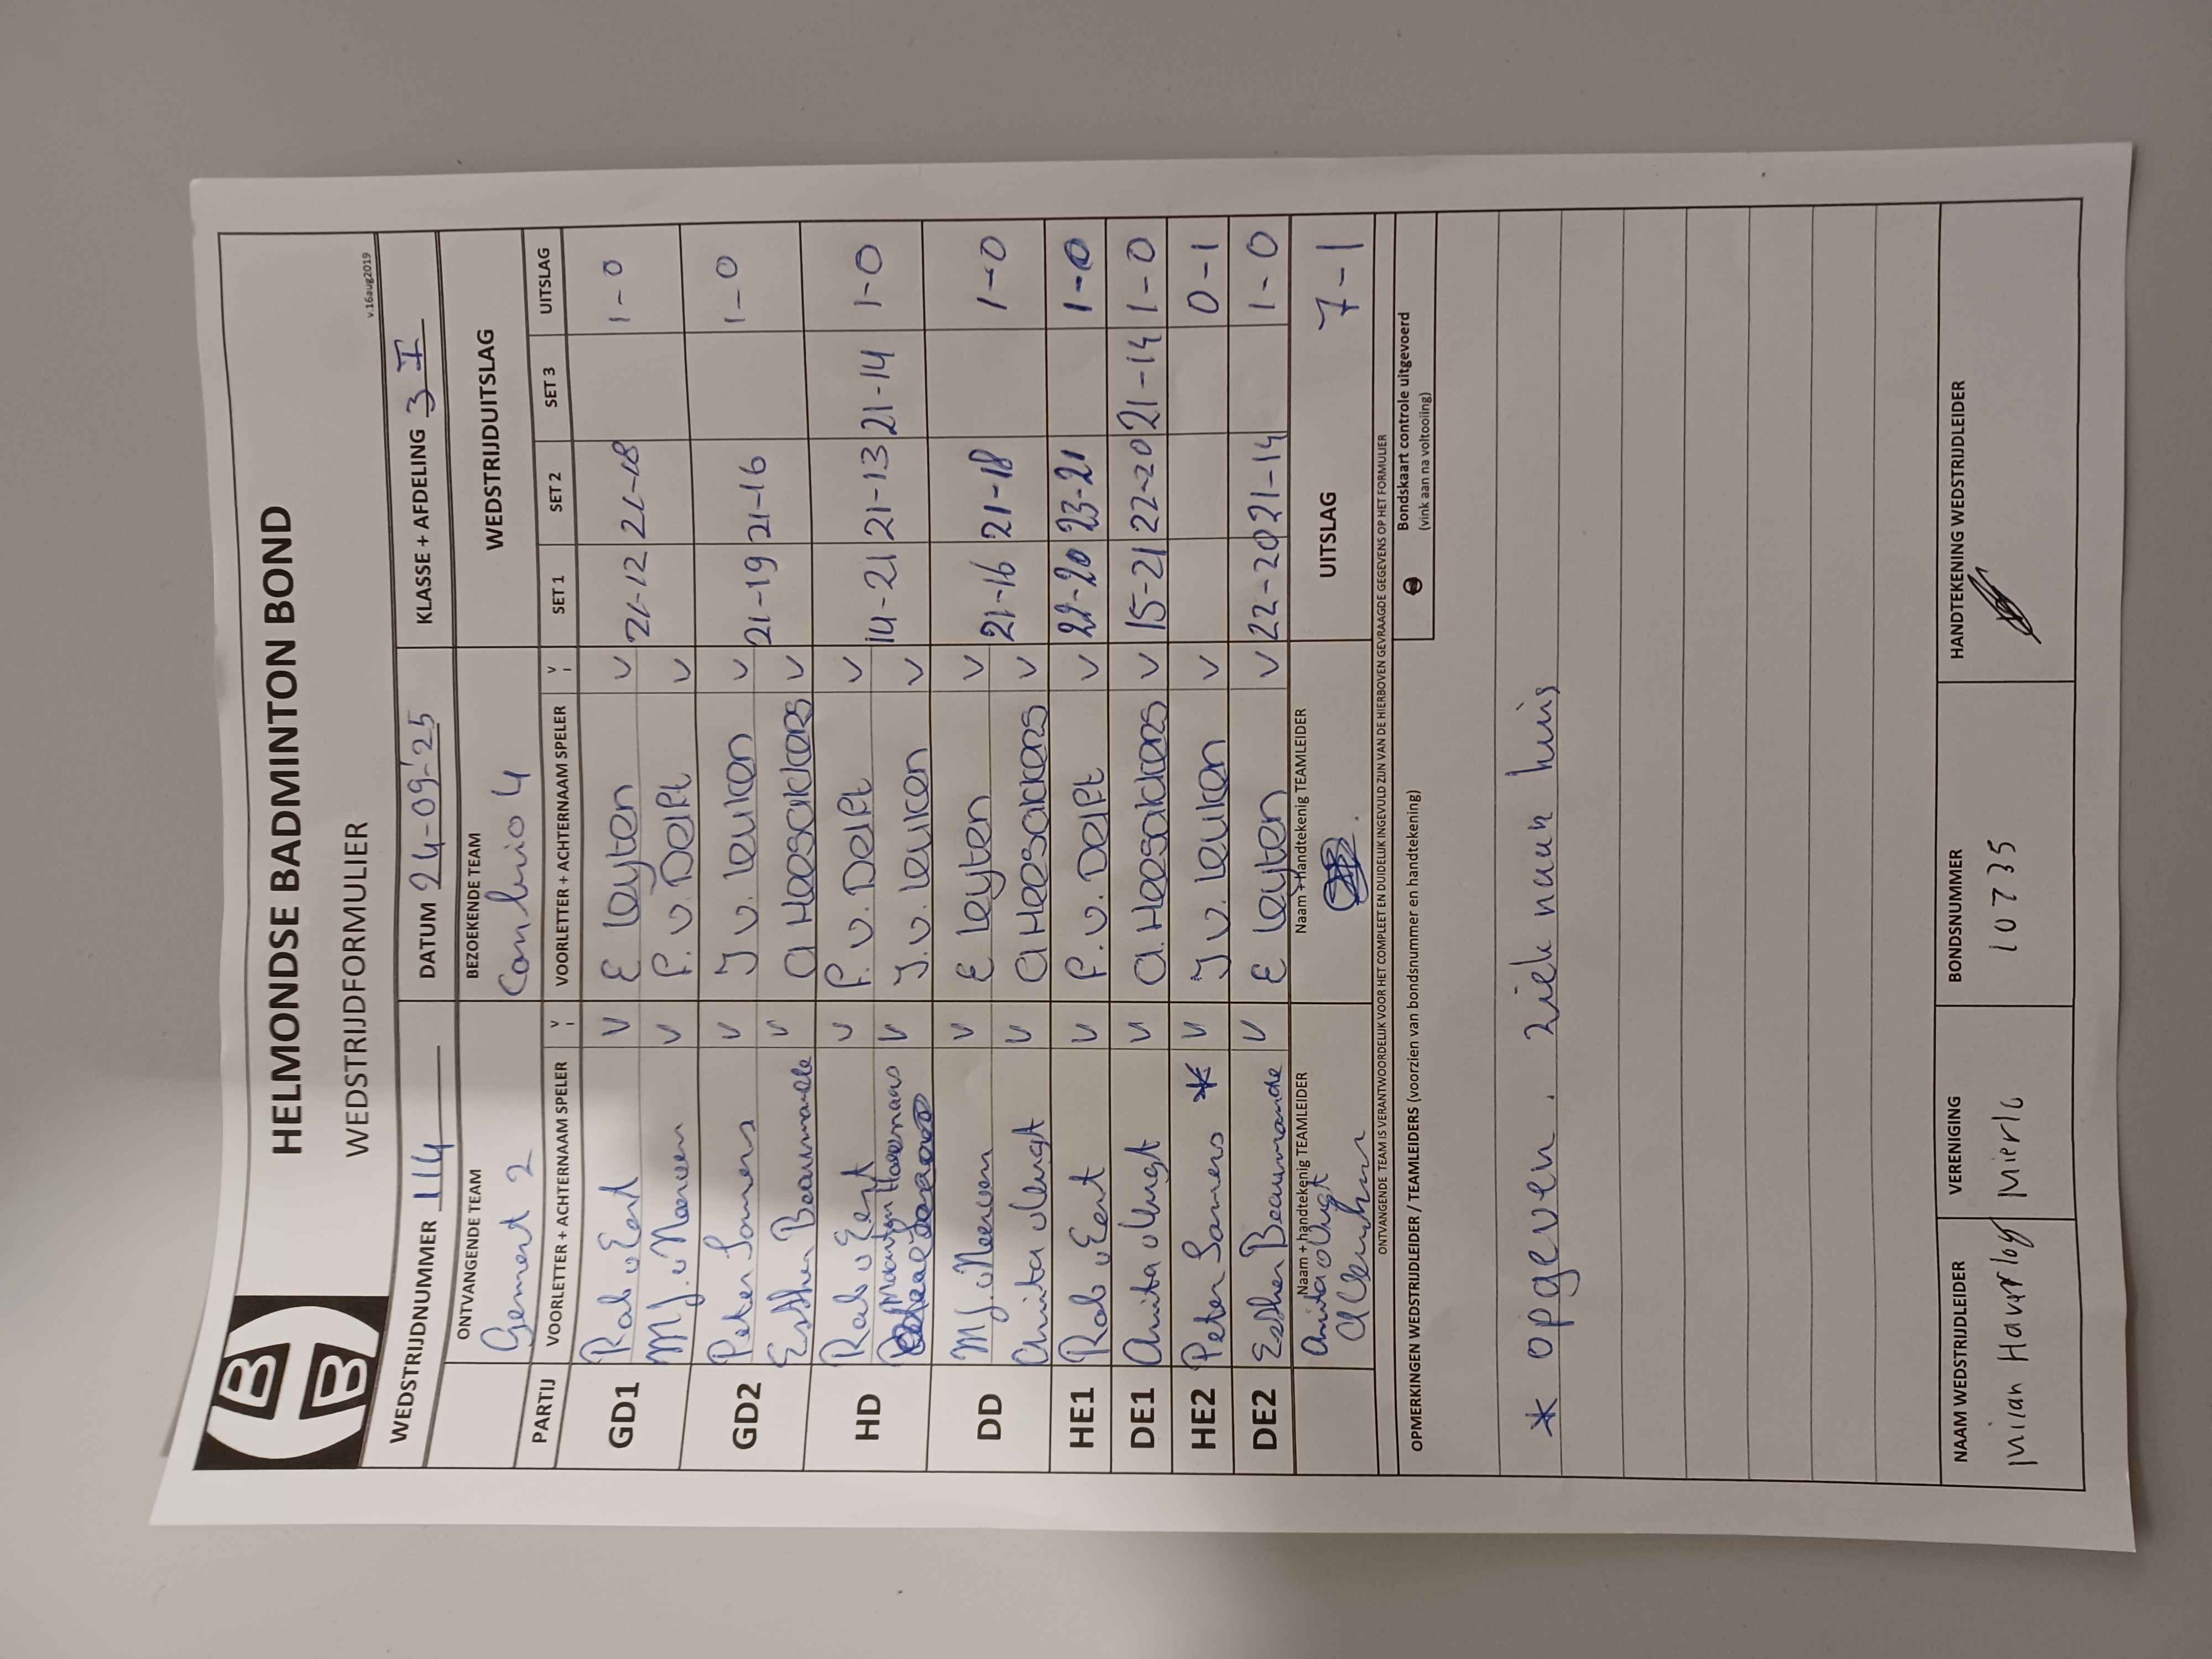 HELMONDSE BADMINTON BOND
WEDSTRIJDFORMULIER
v.16aug2019
WEDSTRIJDNUMMER 114 DATUM 24-09-'25 KLASSE + AFDELING 3 I
ONTVANGENDE TEAM BEZOEKENDE TEAM WEDSTRIJDUITSLAG
Gemert 2 Con brio 4
PARTIJ VOORLETTER + ACHTERNAAM SPELER V VOORLETTER + ACHTERNAAM SPELER V SET 1 SET 2 SET 3 UITSLAG
GD1 Rob v Eert V E Leyten V 21-12 21-18 1-0
MJ. v Meeuwen V P. v. Delft V
GD2 Peter Somers V J v. Leuken V 21-19 21-16 1-0
Esther Beaumande V A Heesakkers V
HD Rob v Eert V P. v. Delft V 14-21 21-13 21-14 1-0
V J. v. Leuken V
DD MJ. v Meeuwen V E Leyten V 21-16 21-18 1-0
Anita vVugt V A Heesakkers V
HE1 Rob v Eert V P. v. Delft V 22-20 23-21 1-0
DE1 Anita vVugt V A. Heesakkers V 15-21 22-20 21-14 1-0
HE2 Peter Somers * V J v. Leuken V 0-1
DE2 Esther Beaumande V E Leyten V 22-20 21-14 1-0
Naam + handtekenig TEAMLEIDER Naam + Handtekenig TEAMLEIDER UITSLAG 7-1
Anita vVugt
ONTVANGENDE TEAM IS VERANTWOORDELIJK VOOR HET COMPLEET EN DUIDELIJK INGEVULD ZIJN VAN DE HIERBOVEN GEVRAAGDE GEGEVENS OP HET FORMULIER
OPMERKINGEN WEDSTRIJDLEIDER / TEAMLEIDERS (voorzien van bondsnummer en handtekening)
Bondskaart controle uitgevoerd
(vink aan na voltooiing)
* opgeven. ziek naar huis
NAAM WEDSTRIJDLEIDER VERENIGING BONDSNUMMER HANDTEKENING WEDSTRIJDLEIDER
Milan Haverlog Mierlo 10735